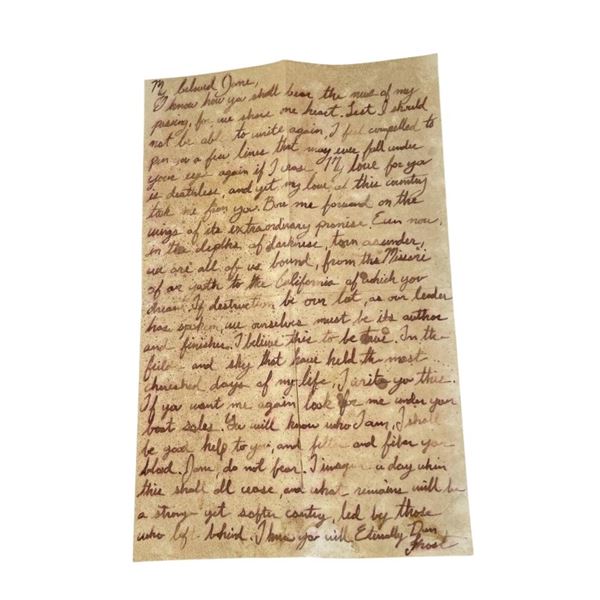 My beloved Jane,
I know how you shall bear the news of my
passing, for we share one heart. Lest I should
not be able to write again, I feel compelled to
pen you a few lines that may ever fall under
your eyes again if I cease. My love for you
is deathless, and yet, my love of this country
took me from you. Bore me forward on the
wings of its extraordinary promise. Even now,
in the depths of darkness, torn asunder,
we are all of us bound, from the Missouri
of our youth to the California of which you
dream. If destruction be our lot, as our leader
has spoken, we ourselves must be its author
and finisher. I believe this to be true. In the
field and sky that have held the most
cherished days of my life, I write you this.
If you want me again look for me under your
boot soles. You will know who I am, I shall
be good help to you, and filter and fiber your
blood. Jane do not fear. I imagine a day when
this shall all cease, and what remains will be
a stronger yet softer country, led by those
who left behind. I know you will. Eternally
Frost